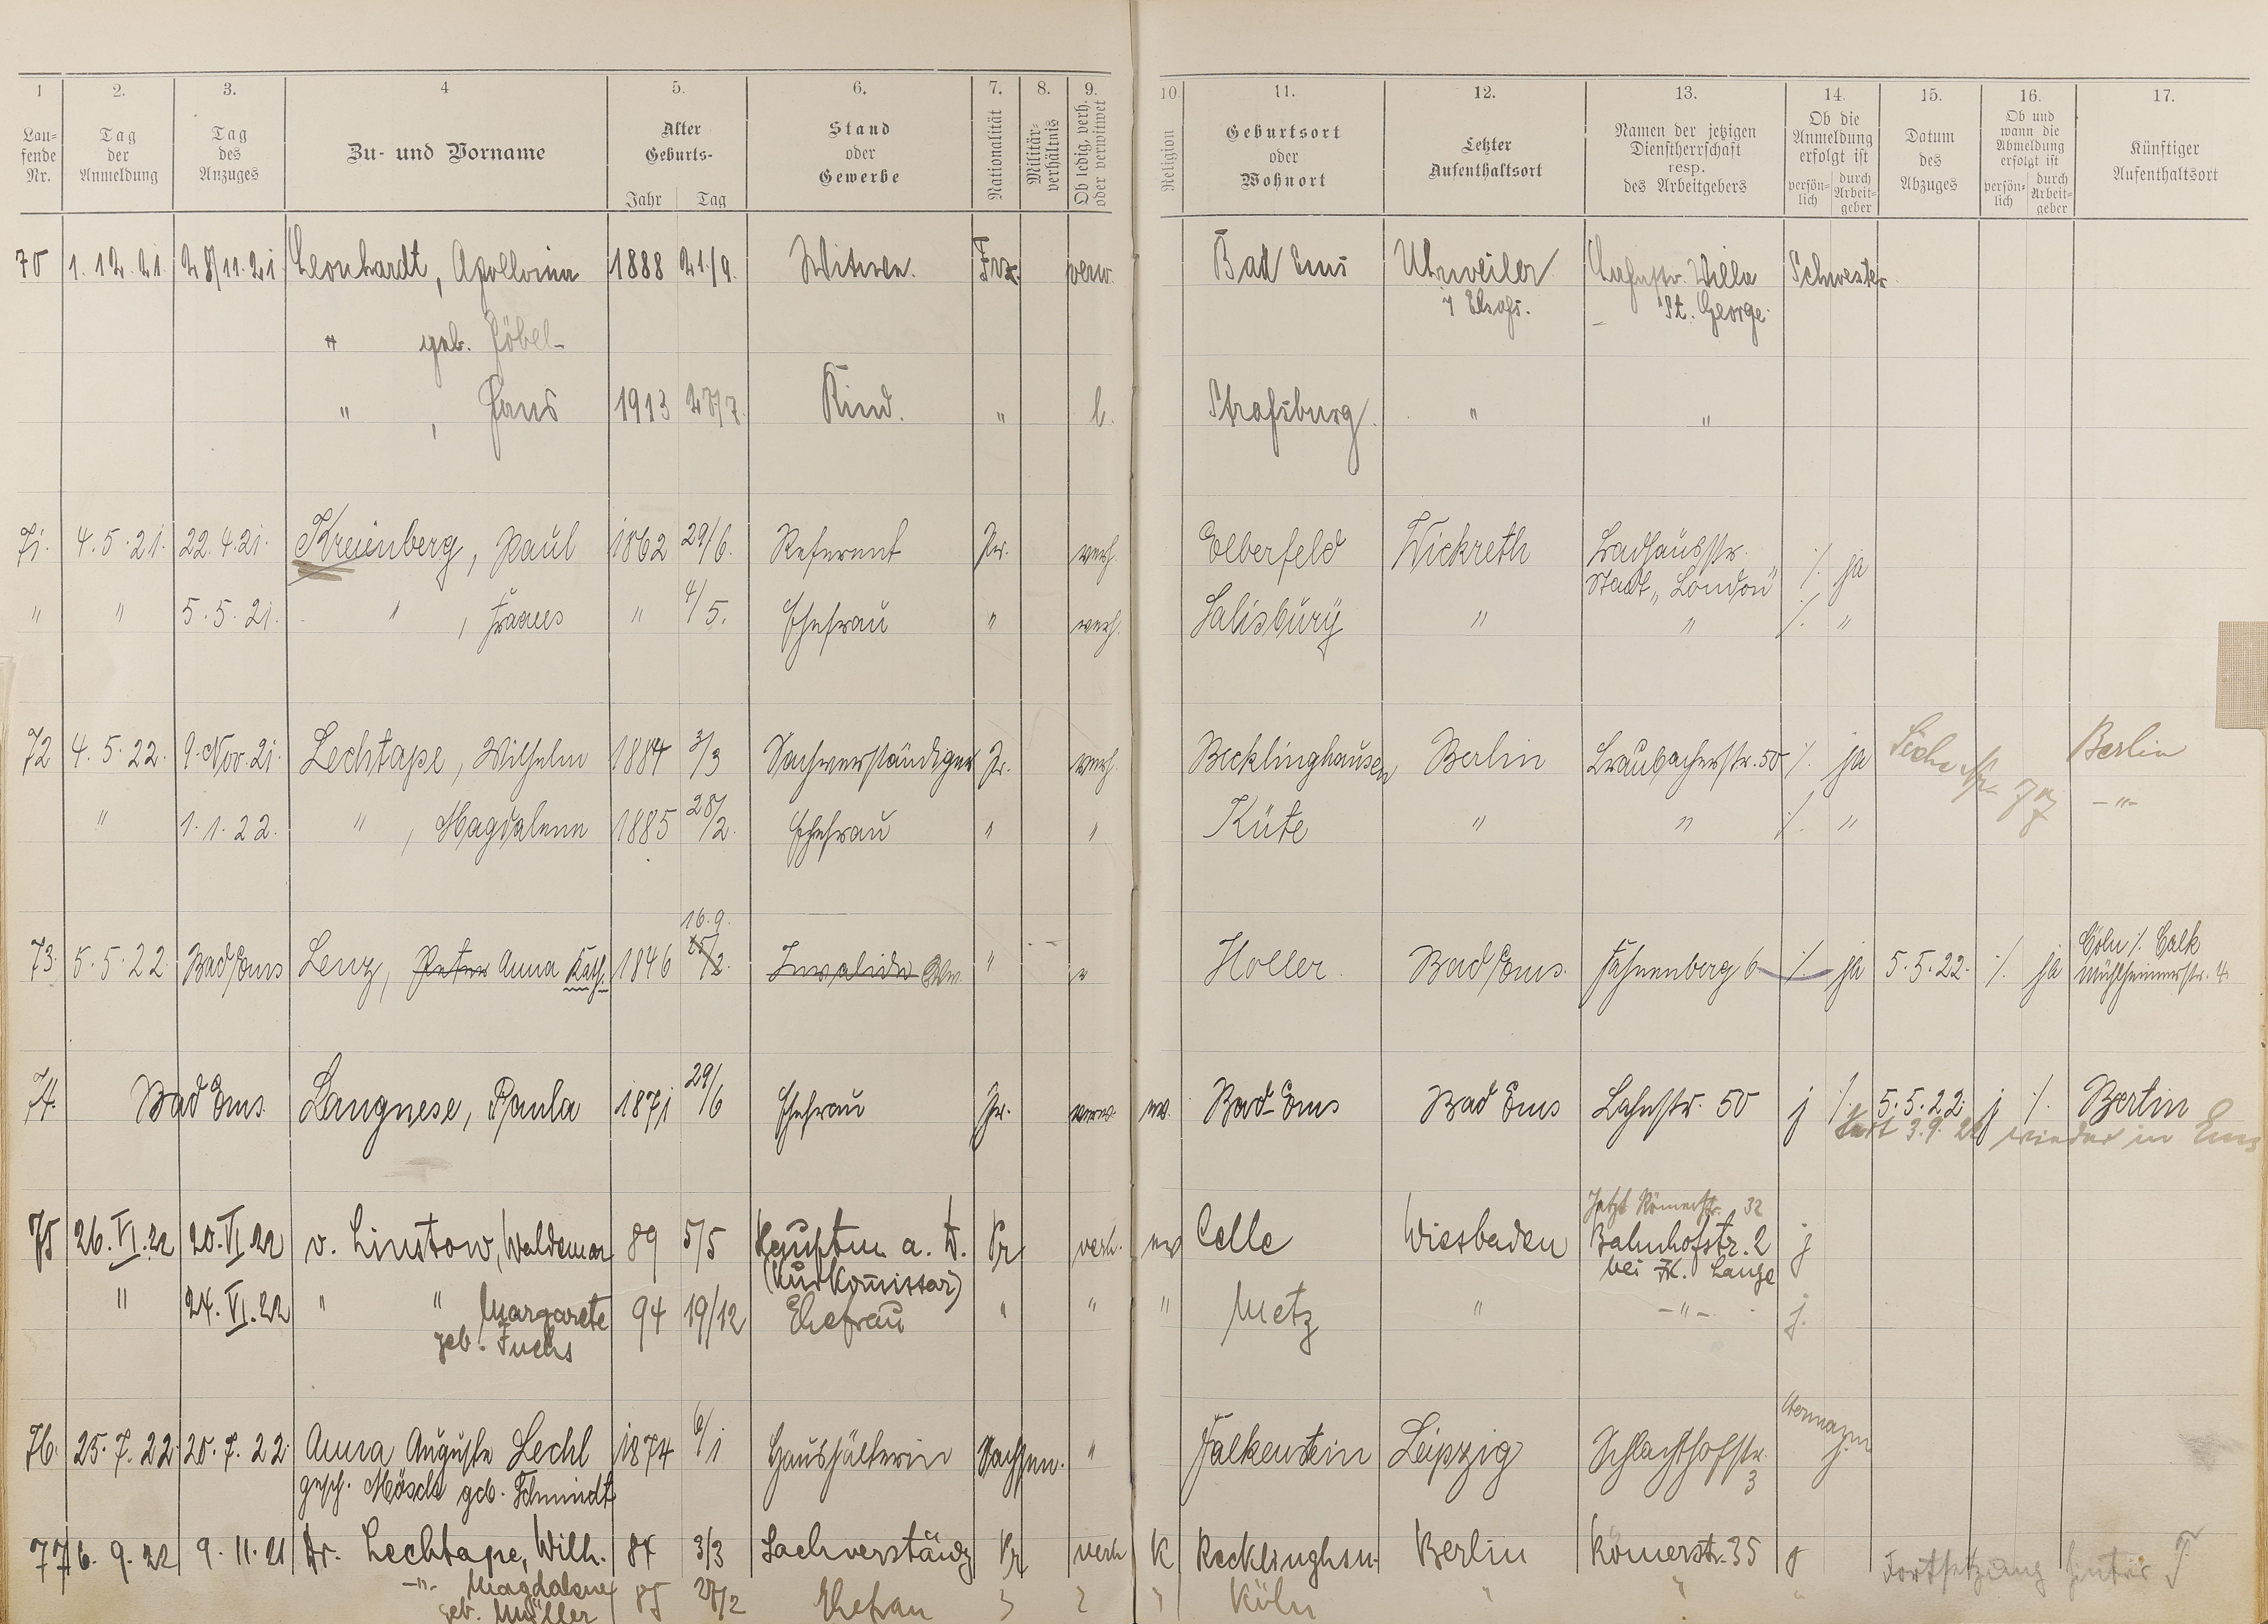 1 2. 3. 4 5. 6. 7. 8. 9. 10 11. 12. 13. 14. 15. 16. 17.
Lau-
fende
Nr.
Tag
der
Anmeldung
Tag
des
Anzuges
Zu- und Vorname
Alter
Geburts-
Jahr Tag
Stand
oder
Gewerbe
Nationalität
Militär-
verhältnis
Ob ledig, verh.
oder verwitwet
Religion
Geburtsort
oder
Wohnort
Letzter
Aufenthaltsort
Namen der jetzigen
Dienstherrschaft
resp.
des Arbeitgebers
Ob die
Anmeldung
erfolgt ist
persön-
lich
durch
Arbeit-
geber
Datum
des
Abzuges
Ob und
wann die
Abmeldung
erfolgt ist
persön-
lich
durch
Arbeit-
geber
Künftiger
Aufenthaltsort
70 1.12.21. 28/11.21 Leonhardt, Apollonia 1888 21./9. Witwe. Frz. verw. Bad Ems Uhrweiler Lahnstr. Villa Schwester
i Elsaß. St. George
" geb. Göbel
" , Hans 1913 27/7. Kind. " l. Straßburg. " "
71. 4.5.21. 22.4.21. Kreuenberg, Paul 1862 29/6. Referent Pr. verh. Elberfeld Wickreth Badhausstr. ./. ja
Stadt "London"
" " 5.5.21. " , " 4/5. Ehefrau " verh. Salisbury " " ./. "
72 4.5.22. 9.Nov.21. Lechtape, Wilhelm 1884 3/3 Sachverständiger Pr. verh. Recklinghausen Berlin Braubacherstr. 50 ./. ja Siehe Nr. 77 Berlin
" 1.1.22. " , Magdalena 1885 28/2. Ehefrau " " Küte " " ./. " -"-
16.9.
73. 5.5.22 Bad Ems Lenz, Peter Anna Kath. 1846 25/2. Invalide Ww. " " Holler. Bad Ems. Fahnenberg 6 ./. ja 5.5.22. ./. ja Cöln ./. Calk
Mühlheimerstr. 4
74. Bad Ems. Langnese, Paula 1871 29/6 Ehefrau Pr. verw. ev. Bad-Ems Bad Ems Lahnstr. 50 j ./. 5.5.22. j ./. Berlin
seit 3.9.22 wieder in Ems
Jetzt Römerstr. 32
75 26.VI.22 20.VI.22 v. Linstow, Waldemar 89 5/5 Hauptm. a. D. Pr verh. ev Celle Wiesbaden Bahnhofstr. 2 j
(Kurkommissar) bei Fr. Lange
" 24.VI.22 " " Margarete 94 19/12 Ehefrau " " " Metz " -"- j.
geb. Fuchs
76. 25.7.22. 20.7.22. Anna Auguste Lechl 1874 6/1 Haushälterin Sachsen. " Falkenstein Leipzig Schlachthofstr. j.
3
gesch. Mösch geb. Schmidt
77 6.9.22 9.11.21 Dr. Lechtape, Wilh. 84 3/3 Sachverständg Pr verh K Recklinghsn. Berlin Römerstr. 35 j Fortsetzung hinter T
-"- Magdalene 85 28/2 Ehefrau " " " Köln " " "
geb. Müller